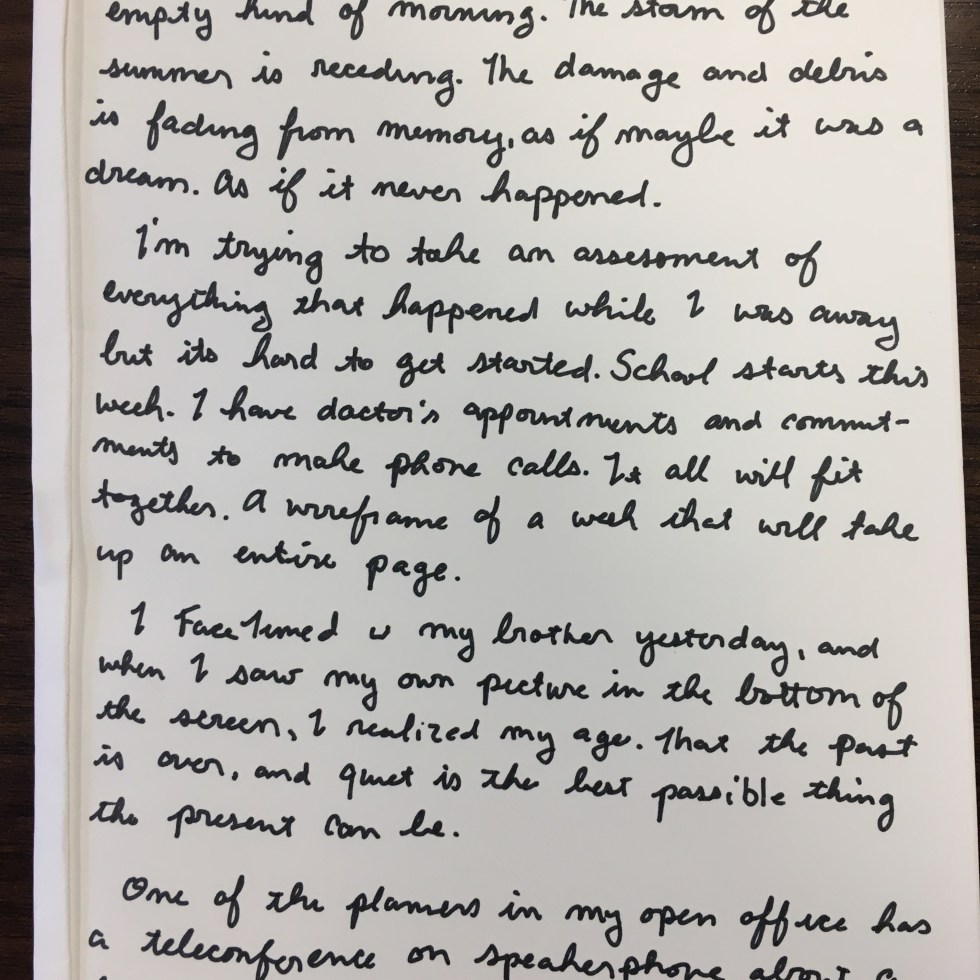 empty kind of morning. The storm of the
summer is receding. The damage and debris
is fading from memory, as if maybe it was a
dream. As if it never happened.
I'm trying to take an assessment of
everything that happened while I was away
but its hard to get started. School starts this
week. I have doctor's appointments and commit-
ments to make phone calls. It all will fit
together. A wireframe of a week that will take
up an entire page.
I FaceTimed w my brother yesterday, and
when I saw my own picture in the bottom of
the screen, I realized my age. That the past
is over, and quiet is the best possible thing
the present can be.
One of the planners in my open office has
a teleconference on speakerphone about a